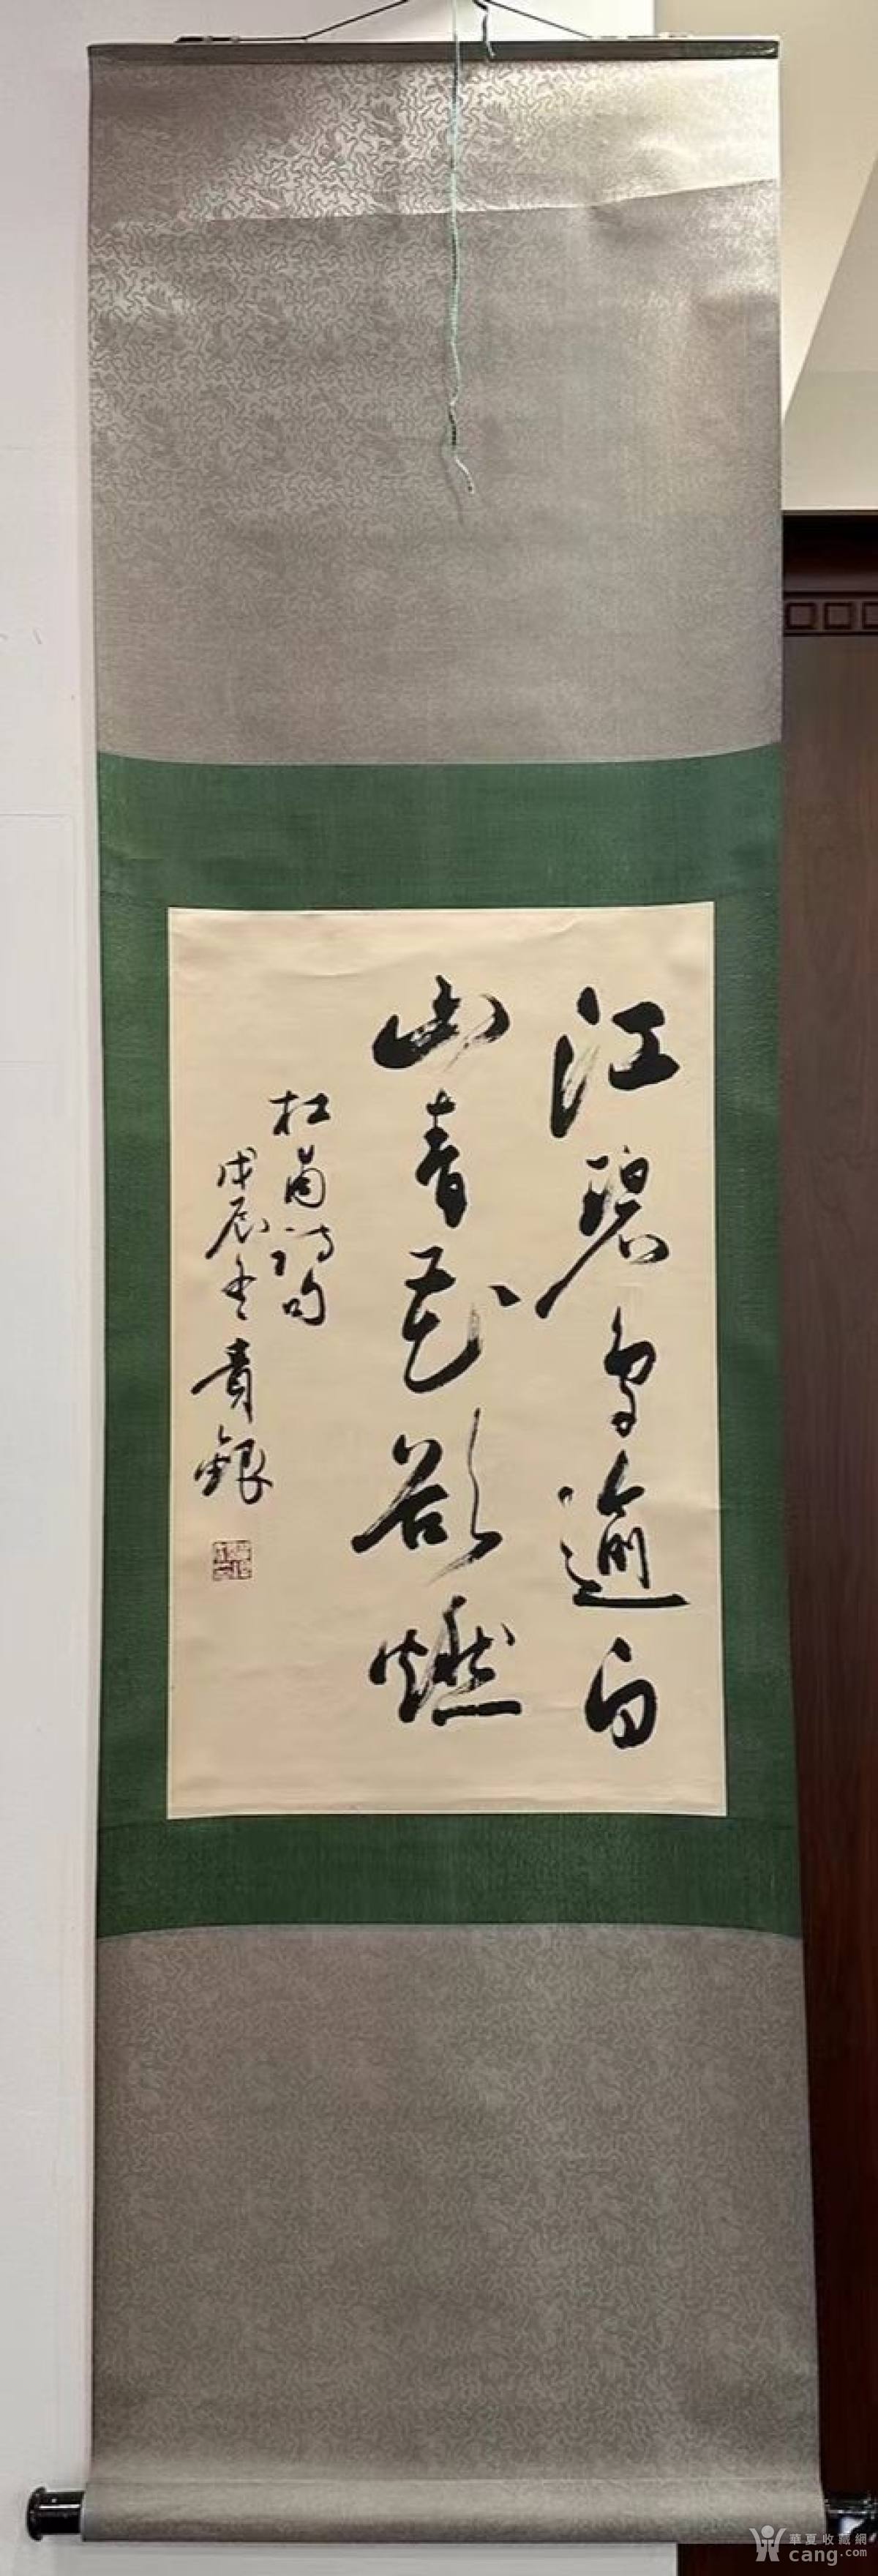 江碧鸟逾白
山青花欲燃
杜甫诗句
戊辰冬青銀
華夏收藏網
cang.com